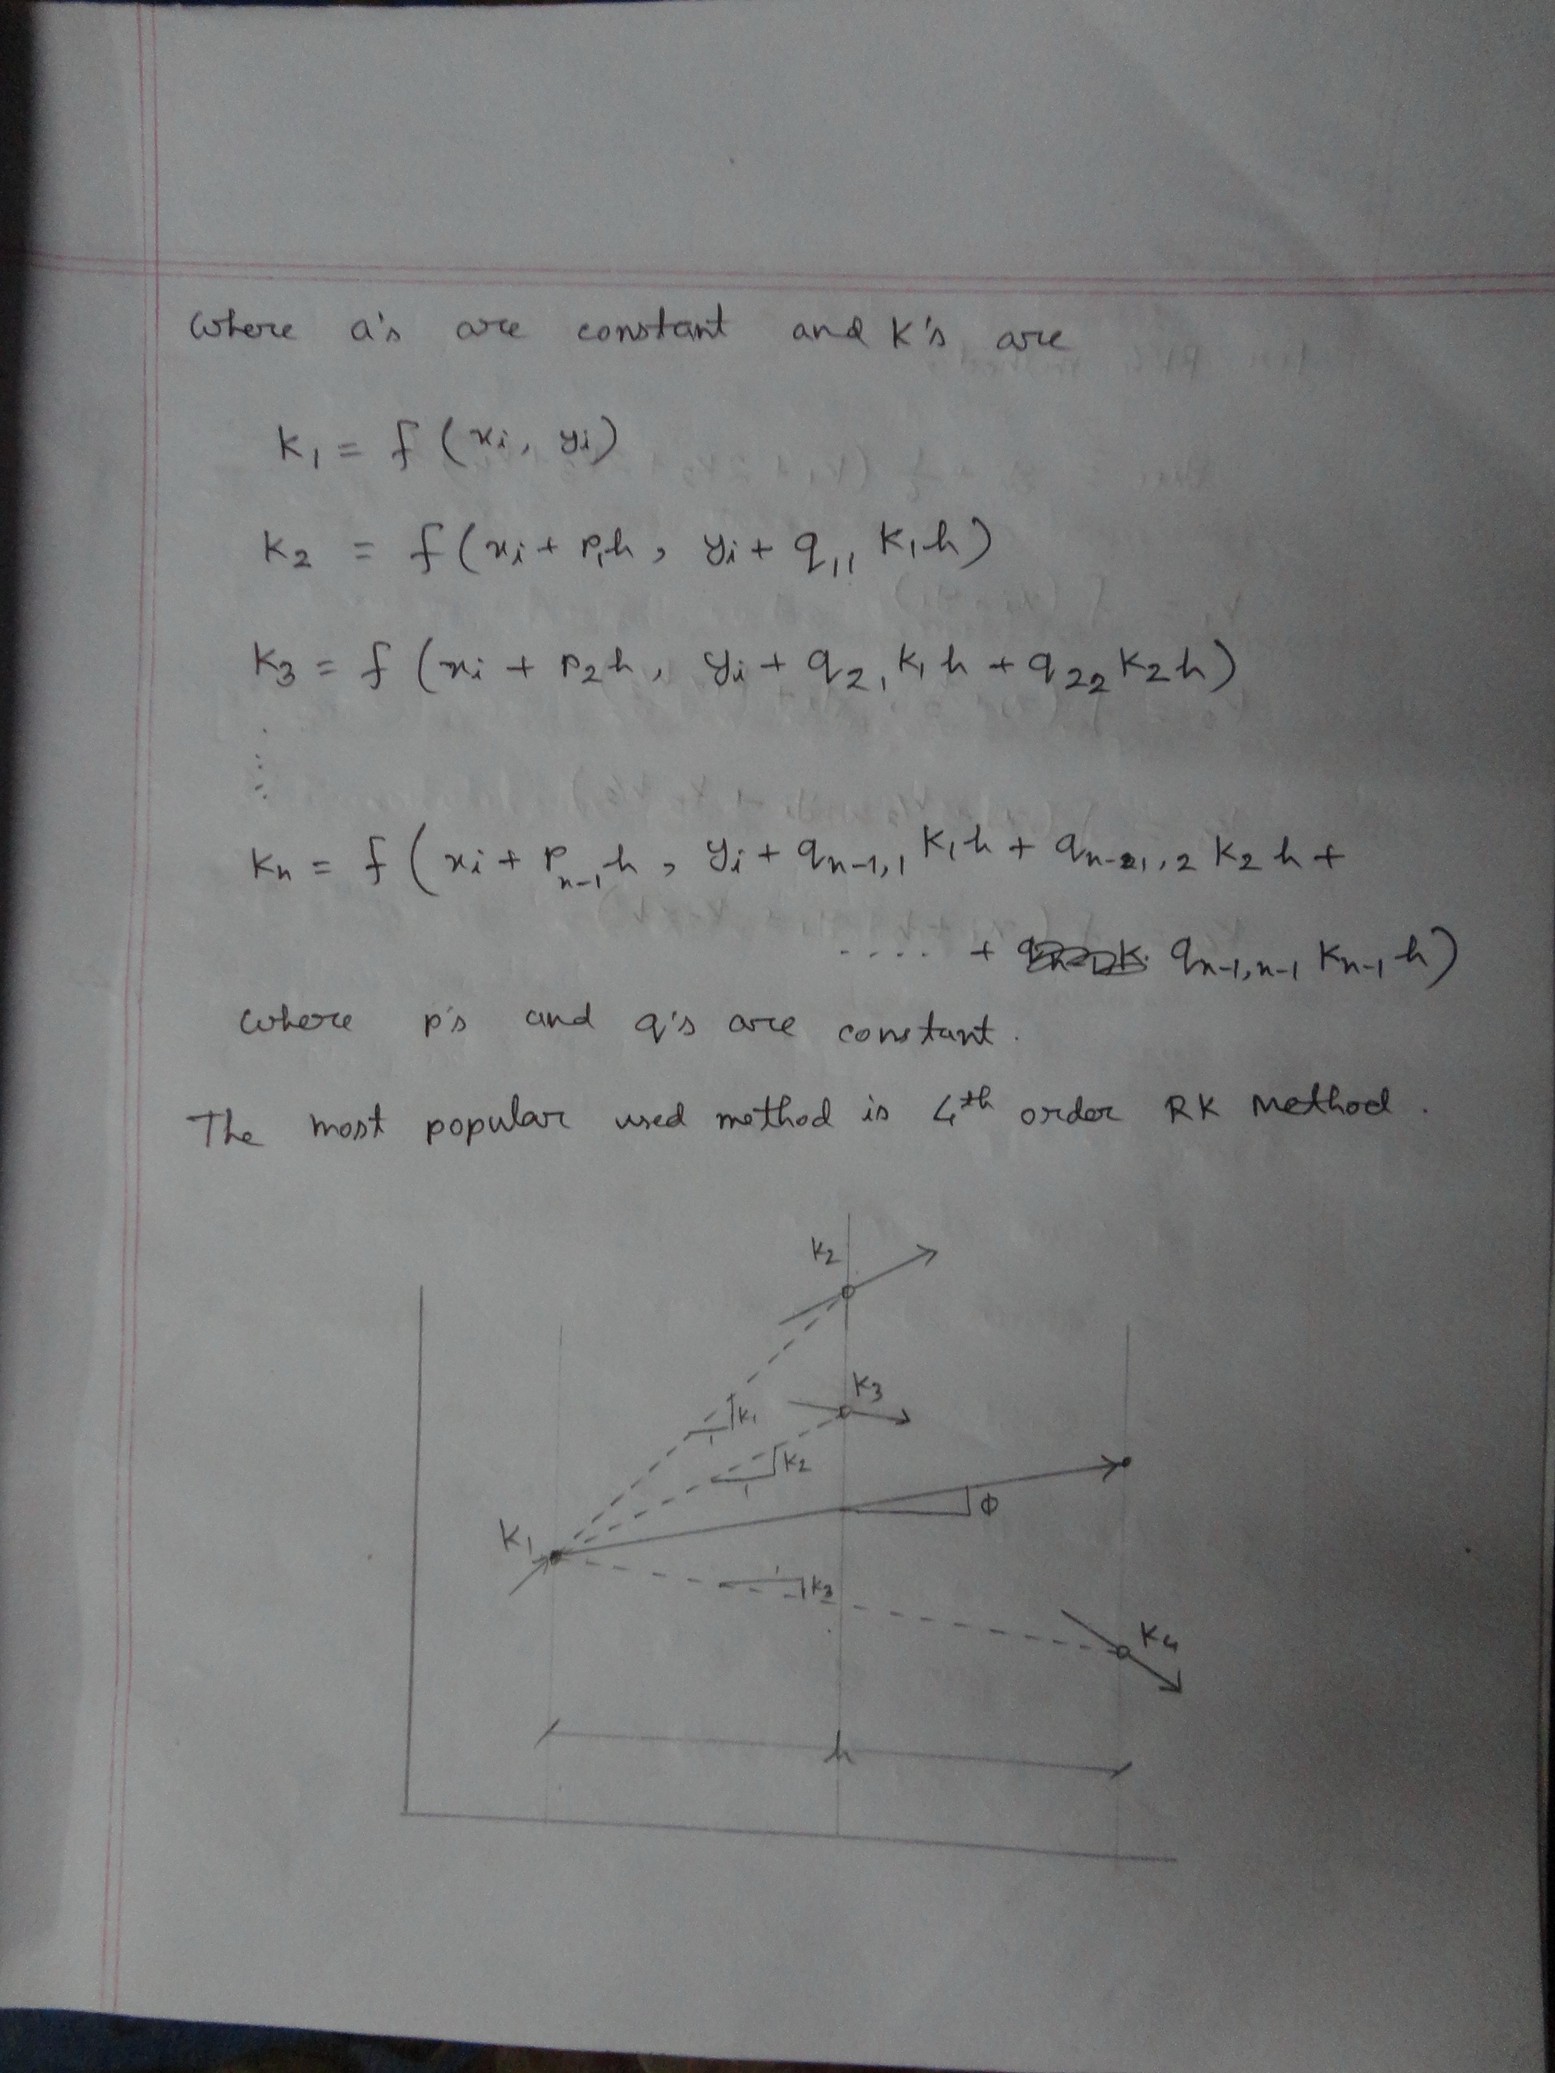 where a's are constant and K's are
K₁ = f (xi, yi)
K₂ = f (xi + p₁h, yi + q₁₁ K₁h)
K₃ = f (xi + p₂h, yi + q₂₁ K₁h + q₂₂ K₂h)
⋮
Kn = f (xi + pₙ₋₁h, yi + qₙ₋₁,₁ K₁h + qₙ₋₁,₂ K₂h +
.... + qₙ₋₁,ₙ₋₁ Kₙ₋₁h)
where p's and q's are constant.
The most popular used method is 4th order RK Method.
K₂
K₃
K₁
1
K₂
1
K₁
ϕ
1
K₃
K₄
h